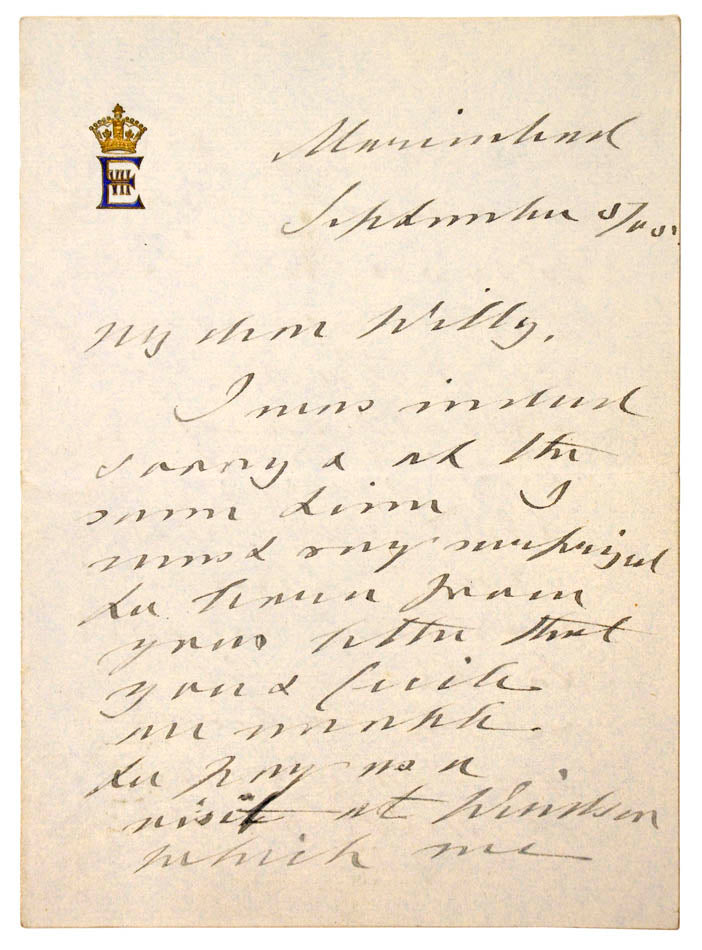 E VII
Marienbad
September
My dear Willy,
I was indeed
sorry & at the
same time I
must say surprized
to hear from
your letter that
you & Cecile
are unable
to pay us a
visit at Windsor
which we